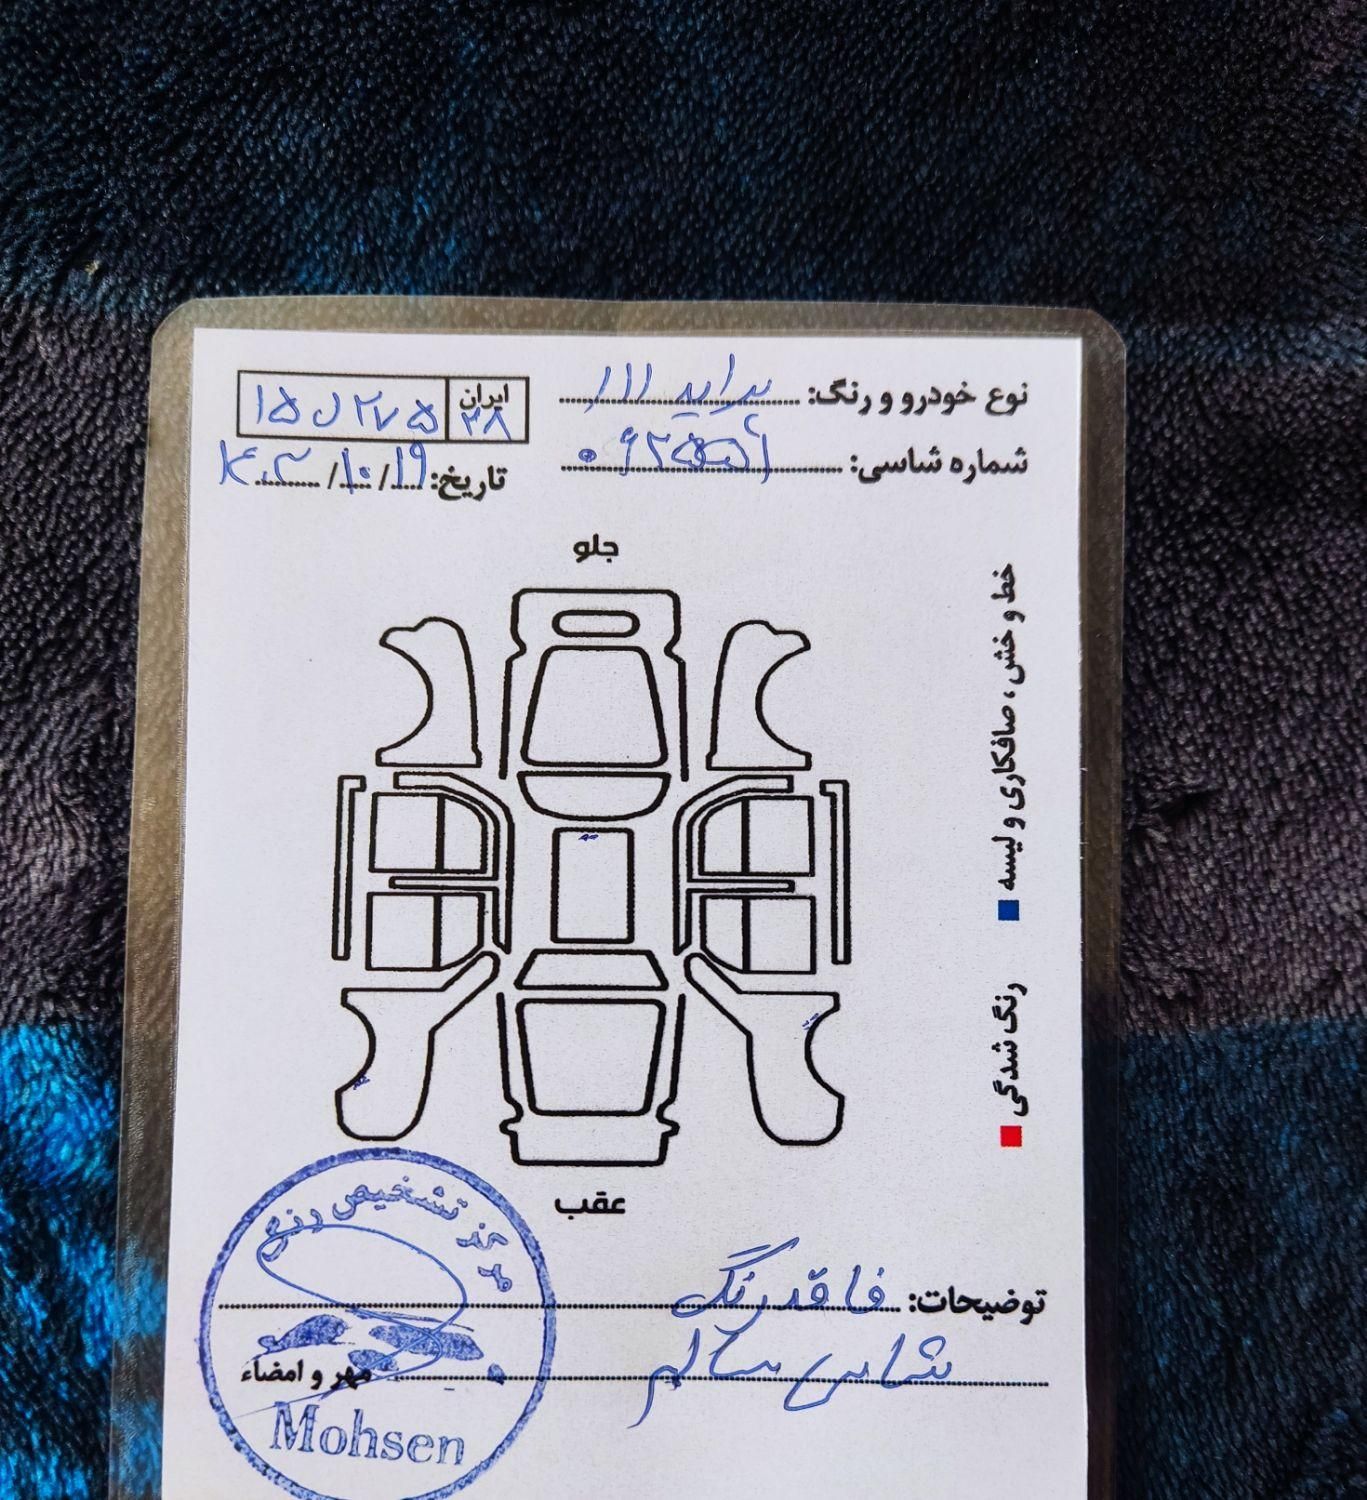 نوع خودرو و رنگ: پراید ۱۱۱
ایران ۳۸ ۱۵ ل ۲۷۵
شماره شاسی:
تاریخ: ۱۹/۱۰/۱۴۰۳
جلو
خط و خش ، صافکاری و لیسه
رنگ شدگی
عقب
مرکز تشخیص رنگ
توضیحات: فاقد رنگ
شاسی سالم
مهر و امضاء
Mohsen